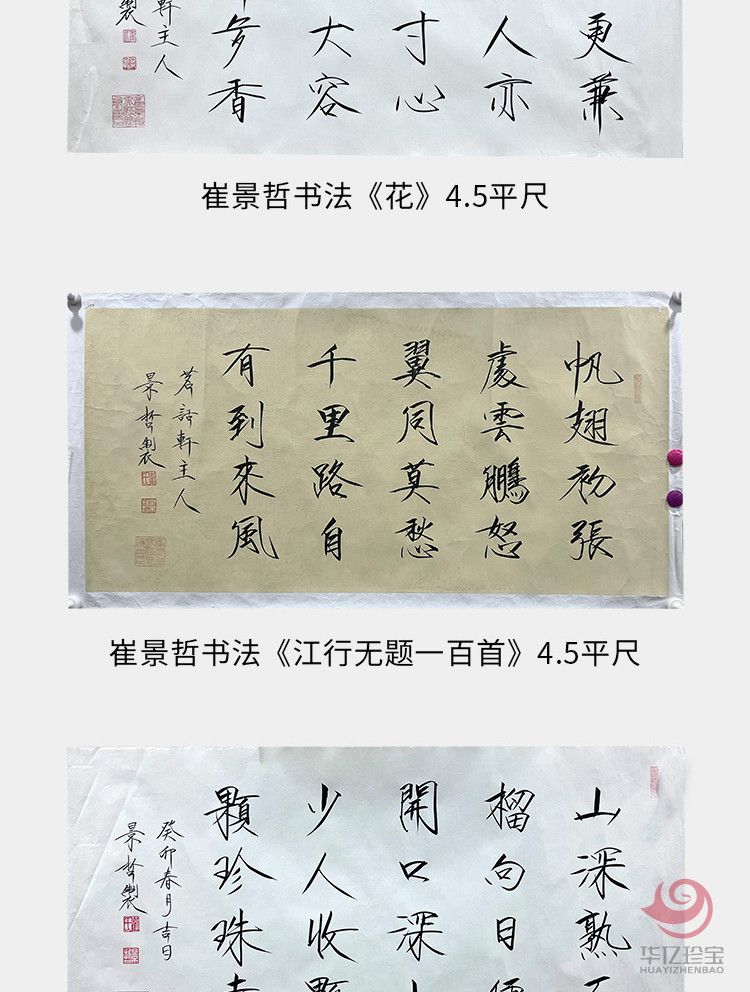 更兼
人亦
寸心
大容
多香
軒主人
製
崔景哲书法《花》4.5平尺
帆翅初張
處雲鵬怒
翼同莫愁
千里路自
有到來風
茗話軒主人
景哲製
崔景哲书法《江行无题一百首》4.5平尺
山深熟
榴向日
開口深
少人收
顆珍珠
癸卯春月吉日
景哲製
华亿珍宝
HUAYIZHENBAO